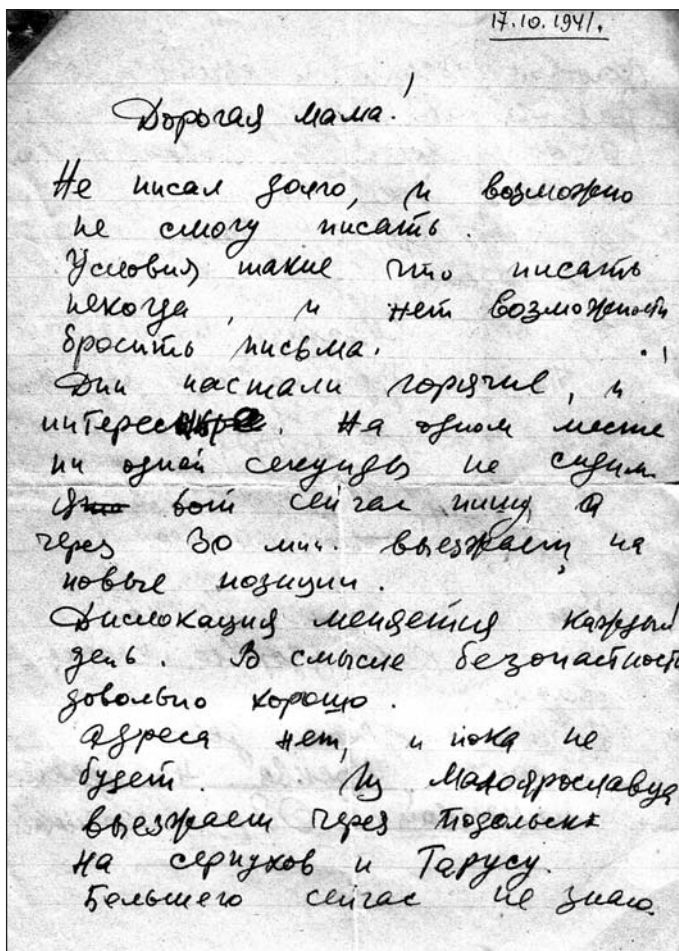 17.10.1941.
Дорогая мама!
Не писал долго, и возможно
не смогу писать.
Условия такие что писать
некогда, и нет возможности
бросить письма.
Дни настали горячие, и
интересные. На одном месте
ни одной секунды не сидим
вот сейчас пишу, а
через 30 мин. выезжаем на
новые позиции.
Дислокация меняется каждый
день. В смысле безопастности
довольно хорошо.
Адреса нет, и пока не
будет. Из Малоярославца
выезжаем через Подольск
на серпухов и Тарусу.
Большего сейчас не знаю.